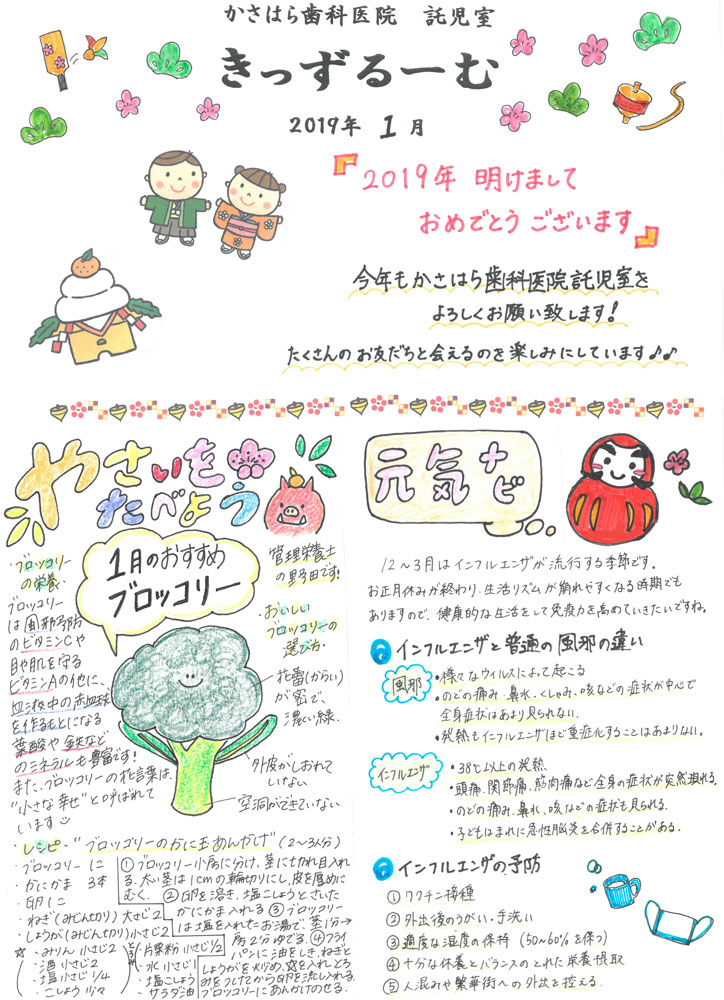 かさはら歯科医院 託児室
きっずるーむ
2019年 1月
『2019年 明けまして
おめでとう ございます』
今年もかさはら歯科医院託児室を
よろしくお願い致します!
たくさんのお友だちと会えるのを楽しみにしています♪♪
やさいを
たべよう
1月のおすすめ
ブロッコリー
管理栄養士
の野田です!
・ブロッコリー
の栄養・
ブロッコリー
は風邪予防
のビタミンCや
目や肌を守る
ビタミンAの他に、
血液中の赤血球
を作るもとになる
葉酸や鉄など
のミネラルも豊富です!
また、ブロッコリーの花言葉は、
"小さな幸せ"と呼ばれて
います☺
・おいしい
ブロッコリーの
選び方・
花蕾(からい)
が密で、
濃い緑。
外皮がしおれて
いない
空洞ができていない
・レシピ・"ブロッコリーのかに玉あんかけ"(2〜3人分)
・ブロッコリー 1コ
・かにかま 3本
・卵1コ
・ねぎ(みじん切り)大さじ2
・しょうが(みじん切り)小さじ2
☆
・みりん 小さじ2
・酒 小さじ2
・塩 小さじ1/4
・こしょう 少々
・片栗粉 小さじ1/2
・水 小さじ1
・塩こしょう
・サラダ油
①ブロッコリー小房に分け、茎に切れ目入れ
る。太い茎は1cmの輪切りにし、皮を厚めに
むく。②卵を溶き、塩こしょうとさいた
かにかま入れる ③ブロッコリー
は塩を入れたお湯で、茎1分→
房2分ゆでる。④フライ
パンに油をしき、ねぎと
しょうがを炒め、☆を入れとろ
みをつけてから卵を流し入れる。
ブロッコリーにあんかけのせる。
元気ナビ
12〜3月はインフルエンザが流行する季節です。
お正月休みが終わり、生活リズムが崩れやすくなる時期でも
ありますので、健康的な生活をして免疫力を高めていきたいですね。
インフルエンザと普通の風邪の違い
風邪
・様々なウイルスによって起こる
・のどの痛み、鼻水、くしゃみ、咳などの症状が中心で
全身症状はあまり見られない。
・発熱もインフルエンザほど重症化することはあまりない。
インフルエンザ
・38℃以上の発熱
・頭痛、関節痛、筋肉痛など全身の症状が突然現れる。
・のどの痛み、鼻水、咳などの症状も見られる。
・子どもはまれに急性脳炎を合併することがある。
インフルエンザの予防
①ワクチン接種
②外出後のうがい・手洗い
③適度な湿度の保持 (50〜60%を保つ)
④十分な休養とバランスのとれた栄養摂取
⑤人混みや繁華街への外出を控える。